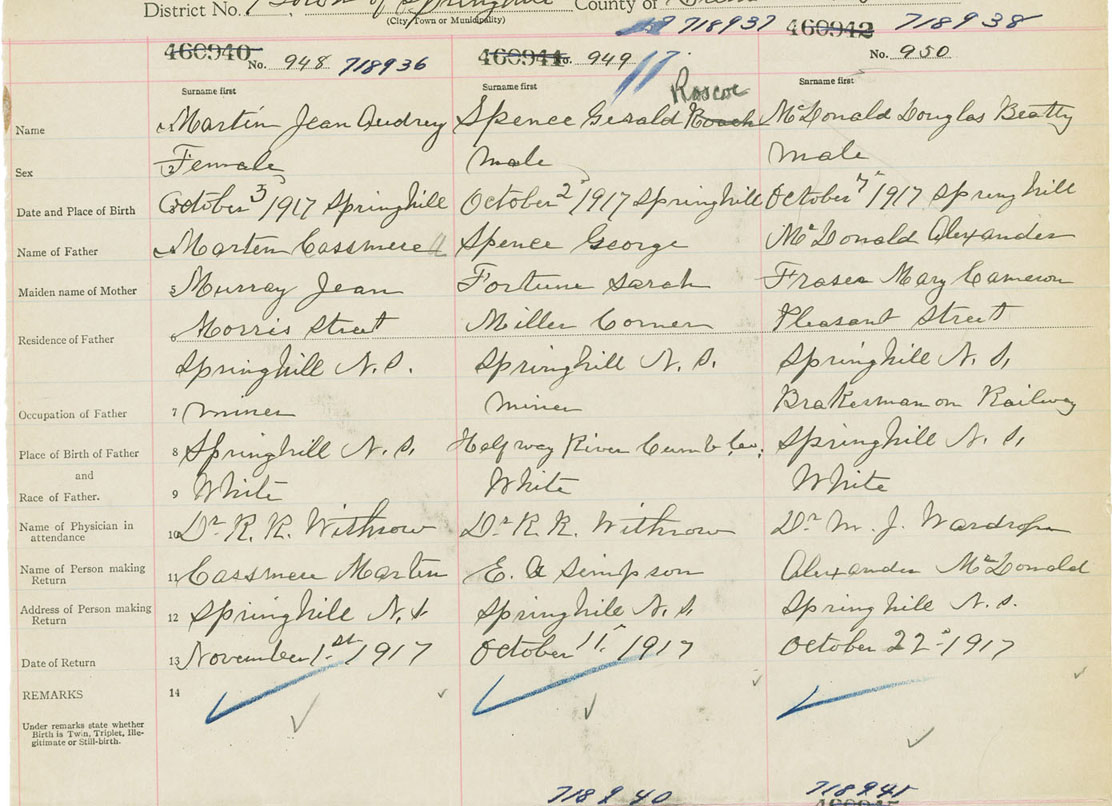 District No. Town of Springhill County of
(City, Town or Municipality)
718937 460942 718938
460940 No. 948 718936 460941 No. 949 No. 950
Surname first Surname first Roscoe Surname first
Name Martin Jean Audrey Spence Gerald Roach McDonald Douglas Beatty
Sex 2 Female Male Male
Date and Place of Birth October 3 1917 Springhill October 2 1917 Springhill October 7 1917 Springhill
Name of Father Martin Cassmere Spence George McDonald Alexander
Maiden name of Mother 5 Murray Jean Fortune Sarah Fraser Mary Cameron
Residence of Father 6 Morris Street Miller Corner Pleasant Street
Springhill N.S. Springhill N.S. Springhill N.S.
Occupation of Father 7 Miner Miner Brakerman on Railway
Place of Birth of Father 8 Springhill N.S. Halfway River Cumb. Co. Springhill N.S.
and
Race of Father. 9 White White White
Name of Physician in attendance 10 Dr R. R. Withrow Dr R. R. Withrow Dr M. J. Wardrope
Name of Person making Return 11 Cassmere Martin E. A Simpson Alexander McDonald
Address of Person making Return 12 Springhill N.S. Springhill N.S. Springhill N.S.
Date of Return 13 November 1st 1917 October 11 1917 October 22 1917
REMARKS 14
Under remarks state whether
Birth is Twin, Triplet, Ille-
gitimate or Still-birth.
718940 718941